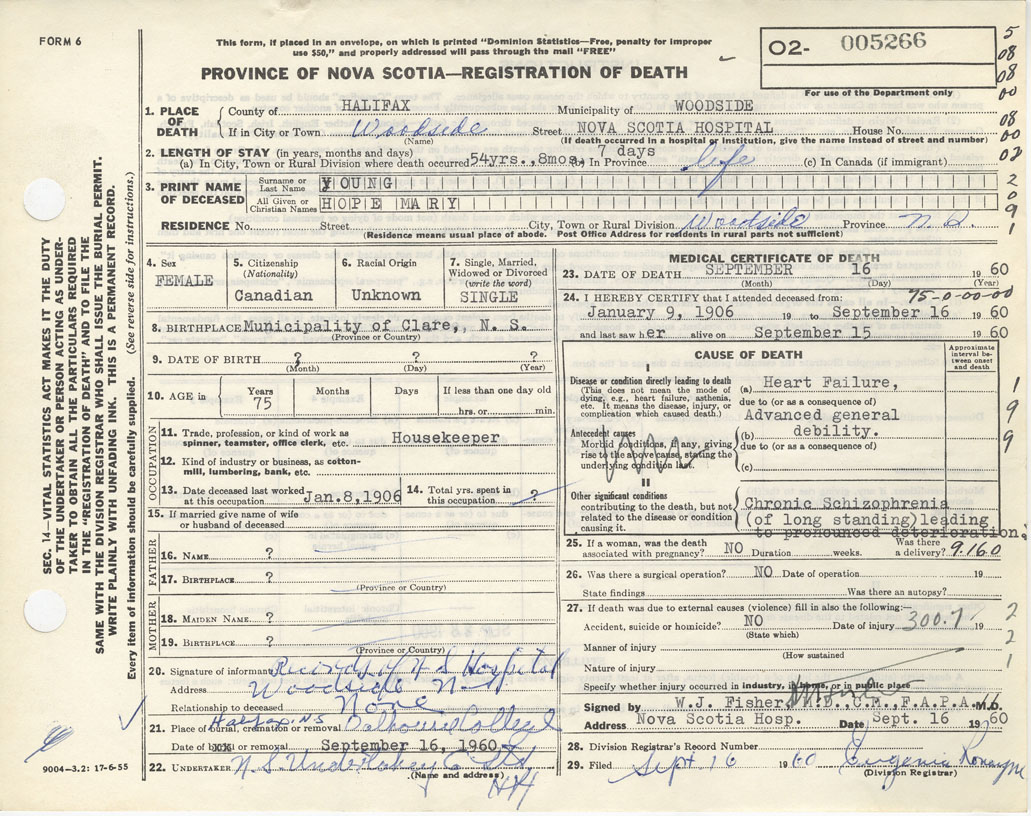 FORM 6
This form, if placed in an envelope, on which is printed "Dominion Statistics—Free, penalty for improper
use $50," and properly addressed will pass through the mail "FREE"
PROVINCE OF NOVA SCOTIA—REGISTRATION OF DEATH
O2- 005266
For use of the Department only
5
08
08
00
08
00
02
2
0
9
1
1. PLACE OF DEATH County of HALIFAX Municipality of WOODSIDE
If in City or Town Woodside Street NOVA SCOTIA HOSPITAL House No.
(Name) (If death occurred in a hospital or institution, give the name instead of street and number)
2. LENGTH OF STAY (in years, months and days)
(a) In City, Town or Rural Division where death occurred 54yrs.,8mos. 7 days (b) In Province life (c) In Canada (if immigrant)
3. PRINT NAME OF DECEASED Surname or Last Name YOUNG
All Given or Christian Names HOPE MARY
RESIDENCE No. Street City, Town or Rural Division Woodside Province N.S.
(Residence means usual place of abode. Post Office Address for residents in rural parts not sufficient)
SEC. 14—VITAL STATISTICS ACT MAKES IT THE DUTY
OF THE UNDERTAKER OR PERSON ACTING AS UNDER-
TAKER TO OBTAIN ALL THE PARTICULARS REQUIRED
IN THE "REGISTRATION OF DEATH" AND TO FILE THE
SAME WITH THE DIVISION REGISTRAR WHO SHALL ISSUE THE BURIAL PERMIT.
WRITE PLAINLY WITH UNFADING INK. THIS IS A PERMANENT RECORD.
Every item of information should be carefully supplied. (See reverse side for instructions.)
4. Sex
FEMALE
5. Citizenship
(Nationality)
Canadian
6. Racial Origin
Unknown
7. Single, Married,
Widowed or Divorced
(write the word)
SINGLE
8. BIRTHPLACE Municipality of Clare, N. S.
(Province or Country)
9. DATE OF BIRTH ? ? ?
(Month) (Day) (Year)
10. AGE in Years Months Days If less than one day old
75 hrs. or min.
OCCUPATION
11. Trade, profession, or kind of work as
spinner, teamster, office clerk, etc. Housekeeper
12. Kind of industry or business, as cotton-
mill, lumbering, bank, etc.
13. Date deceased last worked
at this occupation Jan.8,1906
14. Total yrs. spent in
this occupation ?
15. If married give name of wife
or husband of deceased
FATHER
16. NAME ?
17. BIRTHPLACE ?
(Province or Country)
MOTHER
18. MAIDEN NAME ?
19. BIRTHPLACE ?
(Province or Country)
20. Signature of informant Records of N S Hospital
Address Woodside N.S.
Relationship to deceased None
21. Place of burial, cremation or removal Halifax N.S Dalhousie College
Date of burial or removal September 16, 1960
22. UNDERTAKER N.S. Undertaking Co Ltd
(Name and address)
Hfx
9004—3.2: 17-6-55
MEDICAL CERTIFICATE OF DEATH
23. DATE OF DEATH SEPTEMBER 16 1960
(Month) (Day) (Year)
75-0-00-00
24. I HEREBY CERTIFY that I attended deceased from:
January 9, 1906 19 to September 16 1960
and last saw her alive on September 15 1960
CAUSE OF DEATH
Approximate
interval be-
tween onset
and death
I
Disease or condition directly leading to death
(This does not mean the mode of
dying, e.g., heart failure, asthenia,
etc. It means the disease, injury, or
complication which caused death.)
(a) Heart Failure,
due to (or as a consequence of)
Advanced general
(b) debility.
due to (or as a consequence of)
(c)
Antecedent causes
Morbid conditions, if any, giving
rise to the above cause, stating the
underlying condition last.
II
Other significant conditions
contributing to the death, but not
related to the disease or condition
causing it.
Chronic Schizophrenia
(of long standing)leading
to pronounced deterioration.
1
9
9
25. If a woman, was the death
associated with pregnancy? NO Duration weeks. Was there
a delivery? 9.16.0
26. Was there a surgical operation? NO Date of operation 19
State findings Was there an autopsy?
27. If death was due to external causes (violence) fill in also the following:—
Accident, suicide or homicide? NO Date of injury 300.7 19
(State which)
Manner of injury
(How sustained
Nature of injury
Specify whether injury occurred in industry, in home, or in public place
2
2
1
Signed by W.J. Fisher, M.D.,C.M.,F.A.P.A. M.D.
Address Nova Scotia Hosp. Date Sept. 16 1960
28. Division Registrar's Record Number
29. Filed Sept 16 1960 Eugenia
(Division Registrar)